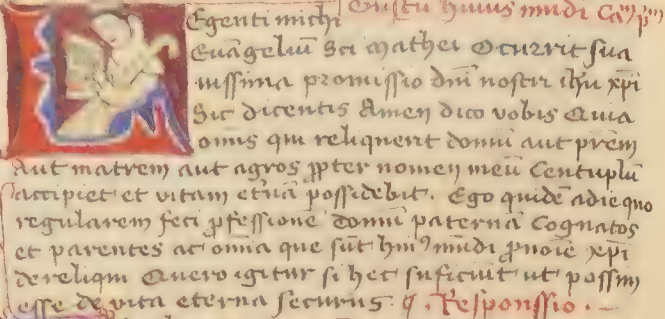 Gustu huius mūdi Caᵐ pᵐ
Legenti michi
Euāgeliū Sci mathei Ocurrit sua
uissima promissio dnī nostri ihu xp̄i
Sic dicentis Amen dico vobis Quia
omīs qui reliquerit domū aut prēm
Aut matrem aut agros ꝓpter nomen meū Centuplū
accipiet et vitam etnā possidebit . Ego quidē a die quo
regularem feci ꝓfessionē domū paternā Cognatos
et parentes ac omīa que sūt huiꝰ mūdi ꝓ noīe xp̄i
dereliqui Quero igitur si hec suficiūt ut possim
esse de vita eterna securus ¶ . Responssio . —